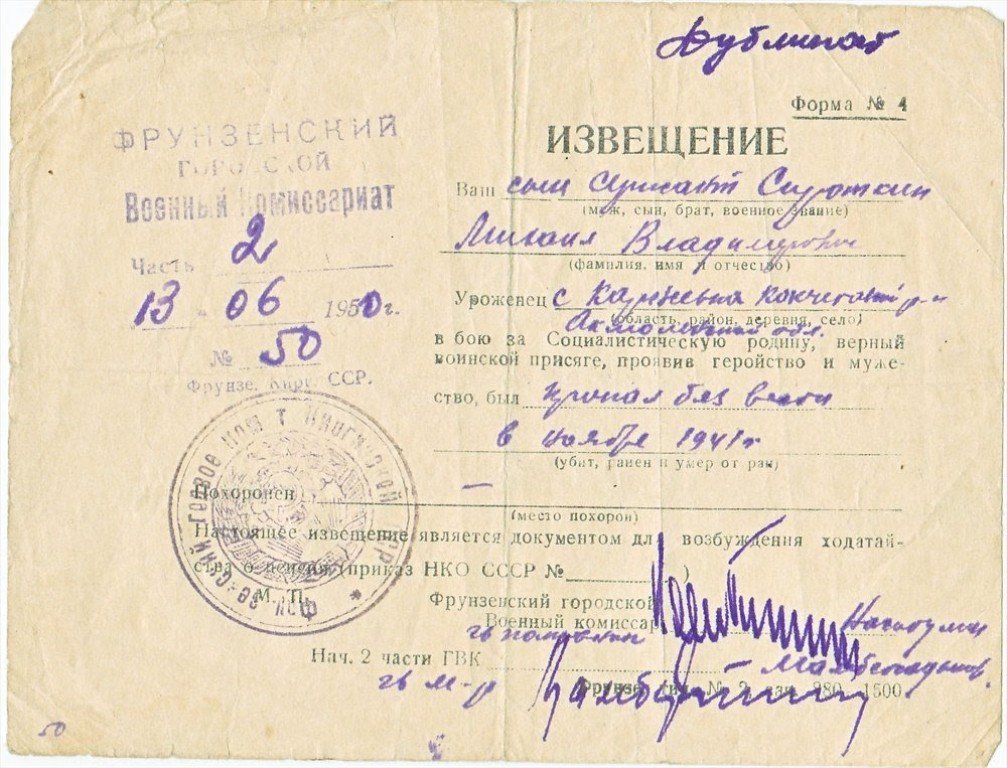 Дубликат
Форма № 4
ФРУНЗЕНСКИЙ
ГОРОДСКОЙ
Военный Комиссариат
Часть 2
13 - 06 1950 г.
№ 50
Фрунзе, Кирг. ССР.
ИЗВЕЩЕНИЕ
Ваш сын сержант Сироткин
(муж, сын, брат, военное звание)
Михаил Владимирович
(фамилия, имя и отчество)
Уроженец с р-н
(область, район, деревня, село)
Акмолинской обл.
в бою за Социалистическую родину, верный
воинской присяге, проявив геройство и муже-
ство, был пропал без вести
в ноябре 1941 г
(убит, ранен и умер от ран)
Похоронен —
(место похорон)
Настоящее извещение является документом для возбуждения ходатай-
ства о пенсии (приказ НКО СССР № )
М. П.
Фрунзенский городской
Военный комиссар
гв полковник
Нач. 2 части ГВК
гв м-р
Фрунзе № 2 1500
50